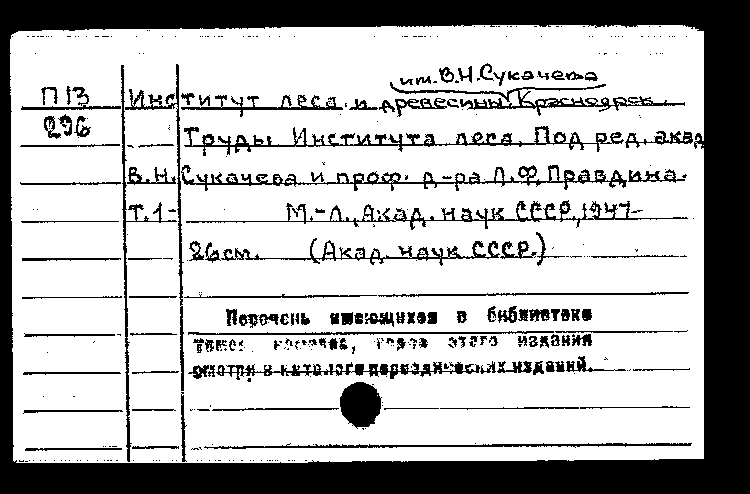 им. В.Н. Сукачева
П13 Институт леса и древесины Красноярск.
296 Труды Института леса. Под ред. акад
В.Н. Сукачева и проф. д-ра Л.Ф. Правдина.
Т.1- М.-Л., Акад. наук СССР, 1947-
26см. (Акад. наук СССР.)
Перечень имеющихся в библиотеке
томов, этого издания
смотри в каталоге периодических изданий.